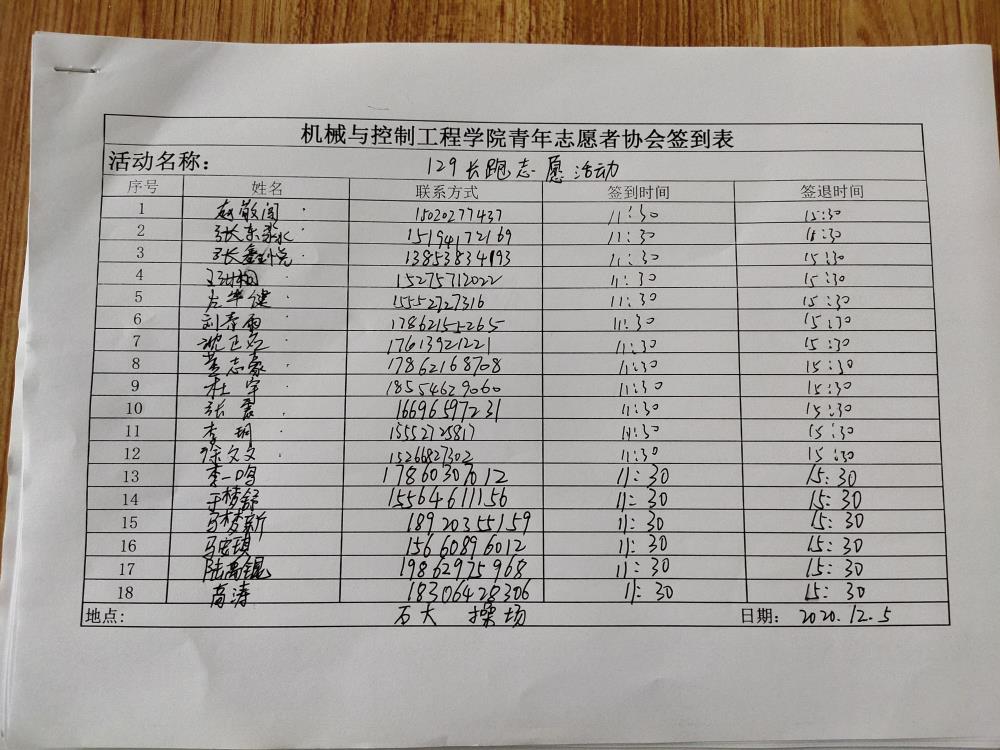 机械与控制工程学院青年志愿者协会签到表
活动名称： 129长跑志愿活动
序号 姓名 联系方式 签到时间 签退时间
1 赵敬闯 15020277437 11:30 15:30
2 张东淼 15194172169 11:30 15:30
3 张鑫 13853834193 11:30 15:30
4 15275712022 11:30 15:30
5 左华健 15552727316 11:30 15:30
6 刘春雨 17862155265 11:30 15:30
7 沈正 17613921221 11:30 15:30
8 董志豪 17862168708 11:30 15:30
9 杜宇 18554629060 11:30 15:30
10 张震 16696597231 11:30 15:30
11 李玥 15552725817 11:30 15:30
12 徐文文 15266827302 11:30 15:30
13 李一鸣 17860307012 11:30 15:30
14 于梦舒 15564611156 11:30 15:30
15 马梦新 18920355159 11:30 15:30
16 马宏琪 15660896012 11:30 15:30
17 陆高锟 19862975968 11:30 15:30
18 高涛 18306428306 11:30 15:30
地点: 石大 操场 日期: 2020.12.5